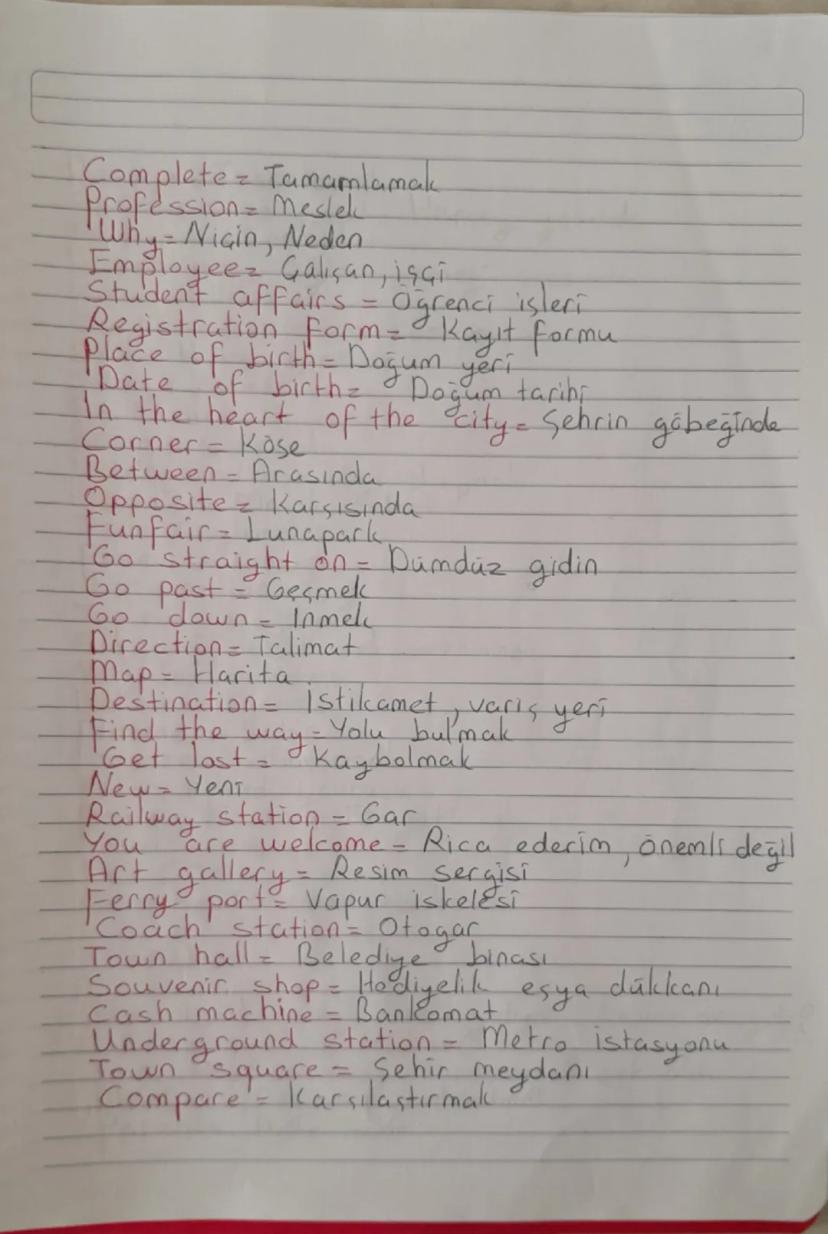 Complete = Tamamlamak
Profession = Meslek
Why = Niçin, Neden
Employee = Çalışan, işçi
Student affairs = Öğrenci işleri
Registration form = Kayıt formu
Place of birth = Doğum yeri
Date of birth = Doğum tarihi
In the heart of the city = Şehrin göbeğinde
Corner = Köşe
Between = Arasında
Opposite = Karşısında
Funfair = Lunapark
Go straight on = Dümdüz gidin
Go past = Geçmek
Go down = İnmek
Direction = Talimat
Map = Harita
Destination = İstikamet, varış yeri
Find the way = Yolu bulmak
Get lost = Kaybolmak
New = Yeni
Railway station = Gar
You are welcome = Rica ederim, önemli değil
Art gallery = Resim sergisi
Ferry port = Vapur iskelesi
Coach station = Otogar
Town hall = Belediye binası
Souvenir shop = Hediyelik eşya dükkanı
Cash machine = Bankomat
Underground station = Metro istasyonu
Town square = Şehir meydanı
Compare = Karşılaştırmak